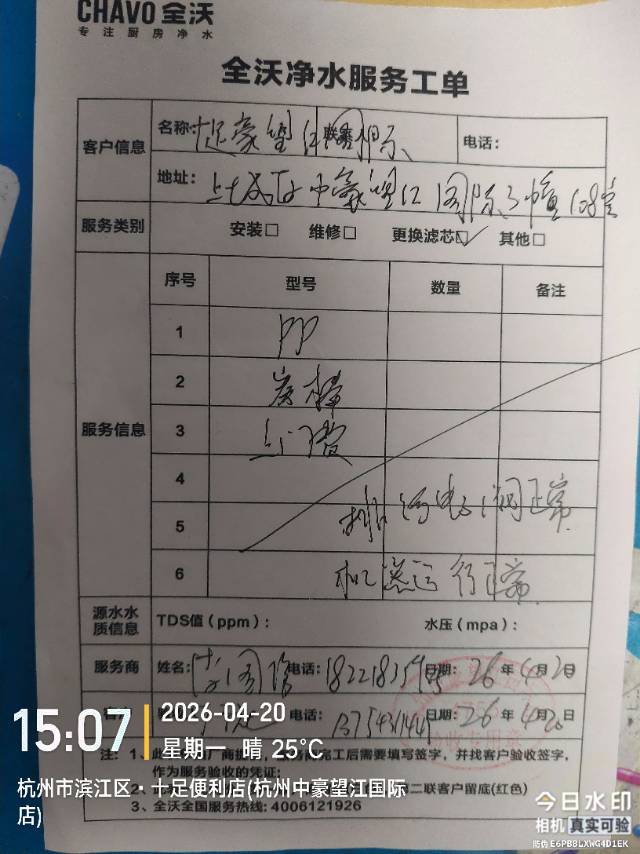 CHAVO 全沃
专注厨房净水
全沃净水服务工单
客户信息 名称: 电话:
地址: 中豪望江国际3幢108室
服务类别 安装□ 维修□ 更换滤芯☑ 其他□
服务信息 序号 型号 数量 备注
1 PP
2 炭棒
3 上门费
4
排污电磁阀正常
5
6 机器运行正常
源水水质信息 TDS值(ppm): 水压(mpa):
服务商 姓名: 电话: 日期: 26年4月20日
电话: 日期: 26年4月20日
注: 1、
完工后需要填写签字,并找客户验收签字,
作为服务验收的凭证;
2、
第二联客户留底(红色)
3、全沃全国服务热线: 4006121926
15:07
2026-04-20
星期一 晴 25°C
杭州市滨江区·十足便利店(杭州中豪望江国际店)
今日水印
相机 真实可验
防伪 E6PB8LXWG4D1EK